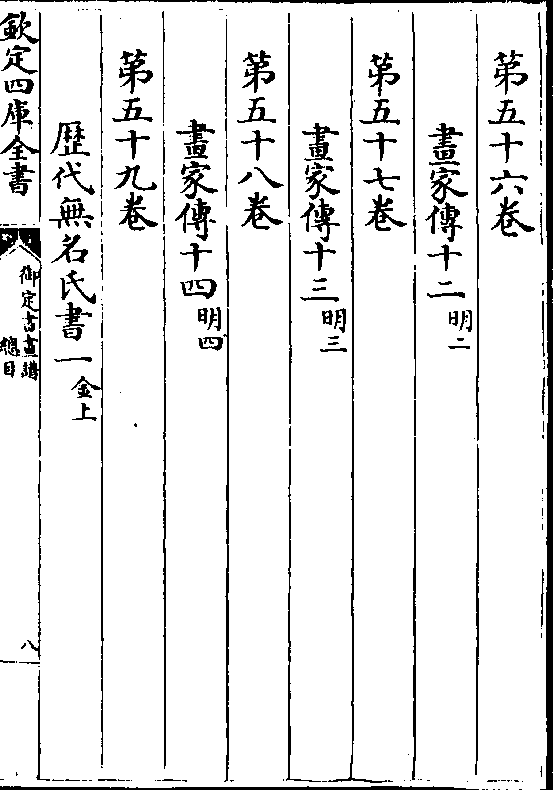 第五十六卷
畫家傳十二明二
第五十七卷
畫家傳十三明三
第五十八卷
畫家傳十四明四
第五十九卷
歷代無名氏書一金上
欽定四庫全書
御定書畫譜
總目
八